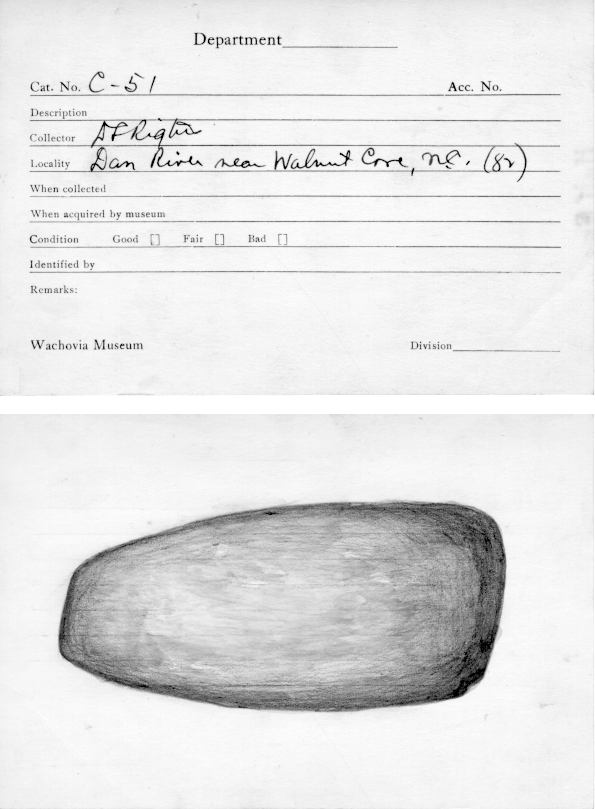 Department
Cat. No. C-51 Acc. No.
Description
Collector D F Rights
Locality Dan River near Walnut Cove, N.C. (82)
When collected
When acquired by museum
Condition Good [] Fair [] Bad []
Identified by
Remarks:
Wachovia Museum Division